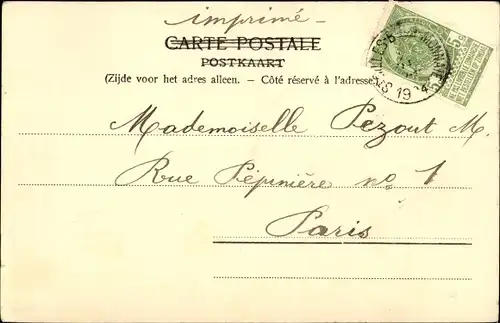 imprimé -
CARTE POSTALE
POSTKAART
(Zijde voor het adres alleen. – Côté réservé à l'adresse.)
1904
Mademoiselle Pezout M.
Rue Pépinière nº 1
Paris